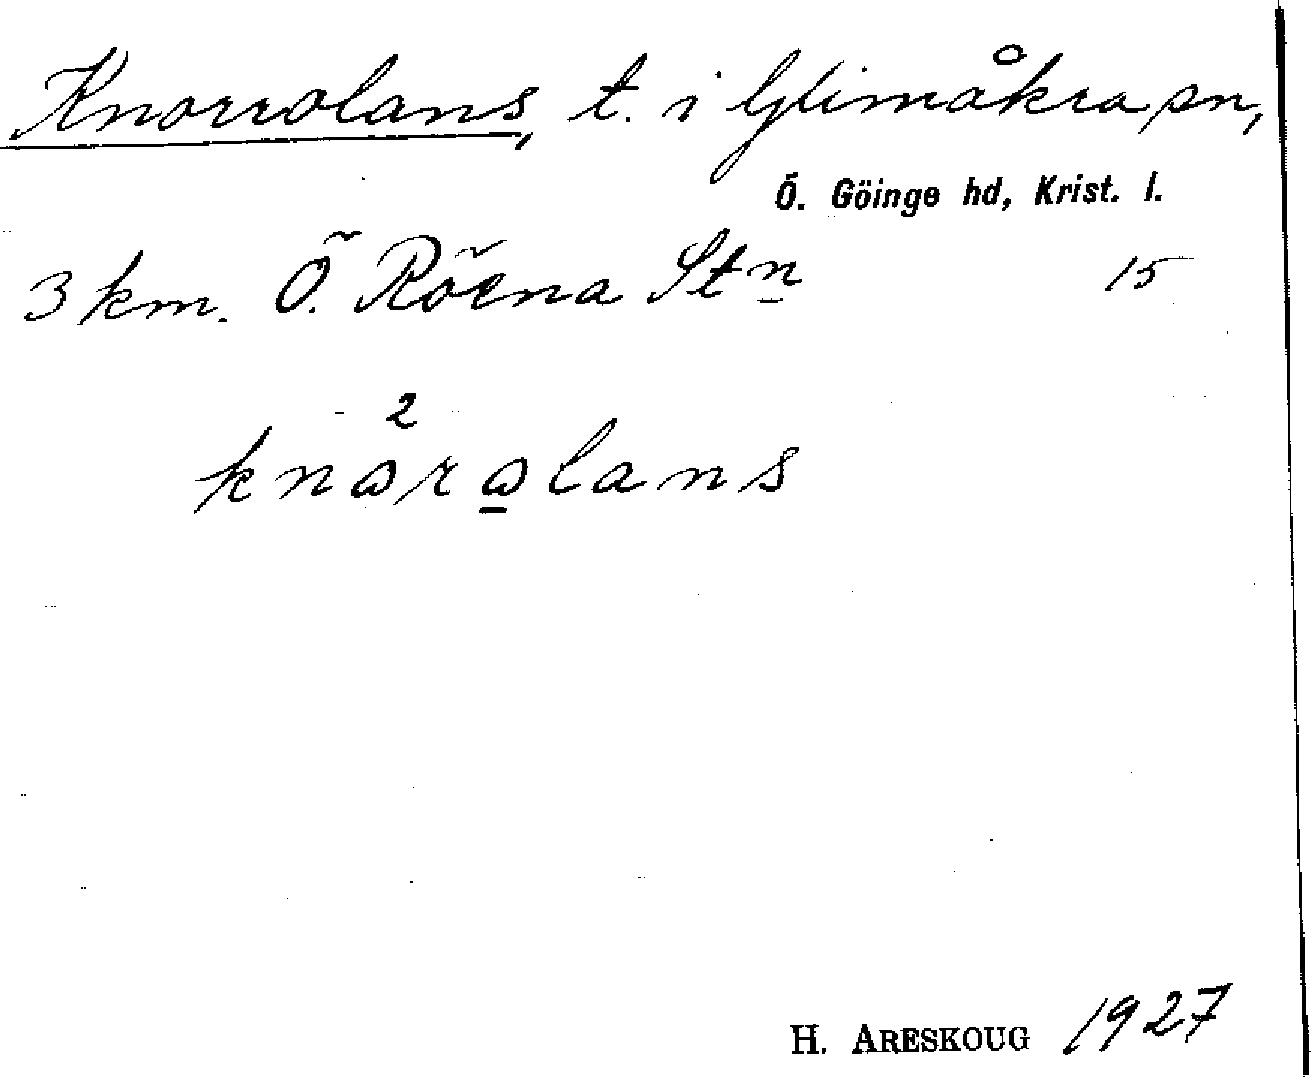 Knorrolans, t. i Glimåkra sn,
Ö. Göinge hd, Krist. l.
3 km. Ö. Röena Stn 15
2
knɷrɷlans
H. ARESKOUG 1927